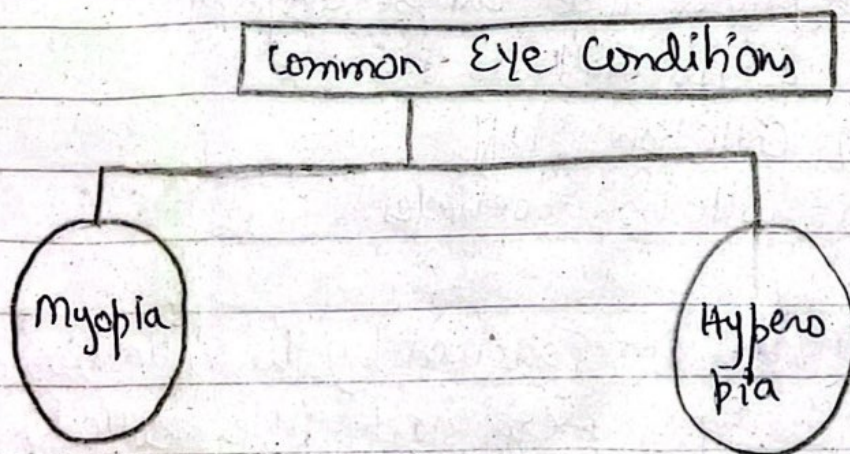 Common Eye Conditions
Myopia
Hypero
pia